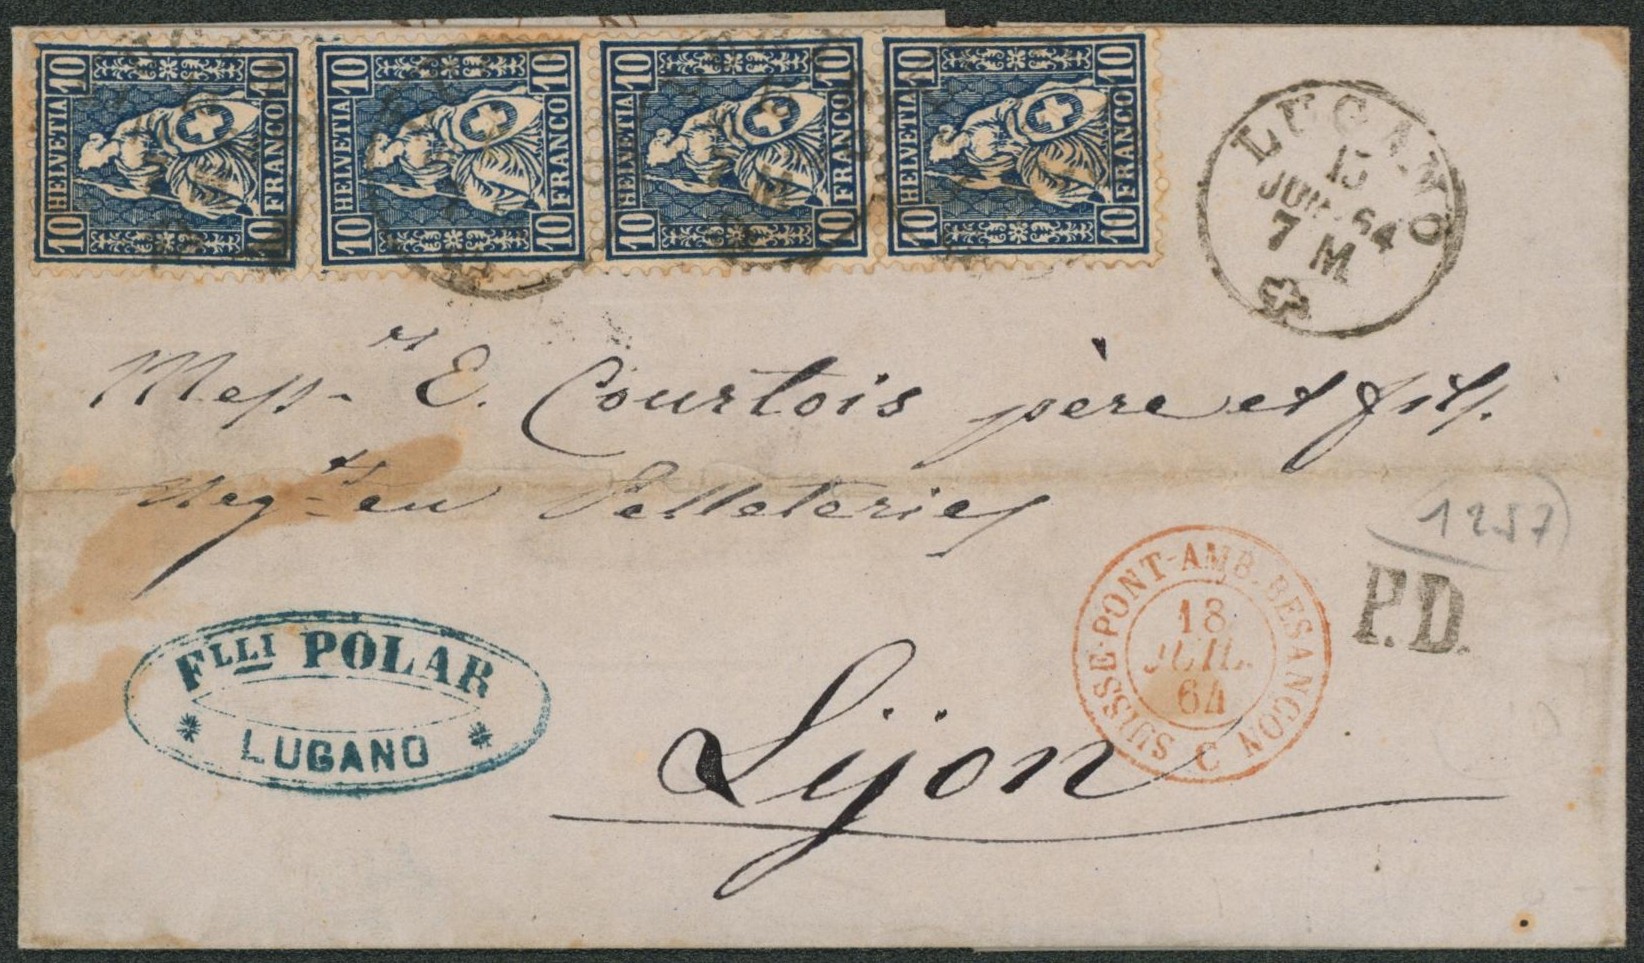 10 10 HELVETIA FRANCO 10 10
10 10 HELVETIA FRANCO 10 10
10 10 HELVETIA FRANCO 10 10
10 10 HELVETIA FRANCO 10 10
LUGANO
15
JUIL. 64
7 M
Mess.rs E. Courtois père et fils.
Neg.ts en Pelleteries
1257
P.D.
SUISSE-PONT-AMB. BESANCON C
18
JUIL.
64
FLLI POLAR
LUGANO
Lyon